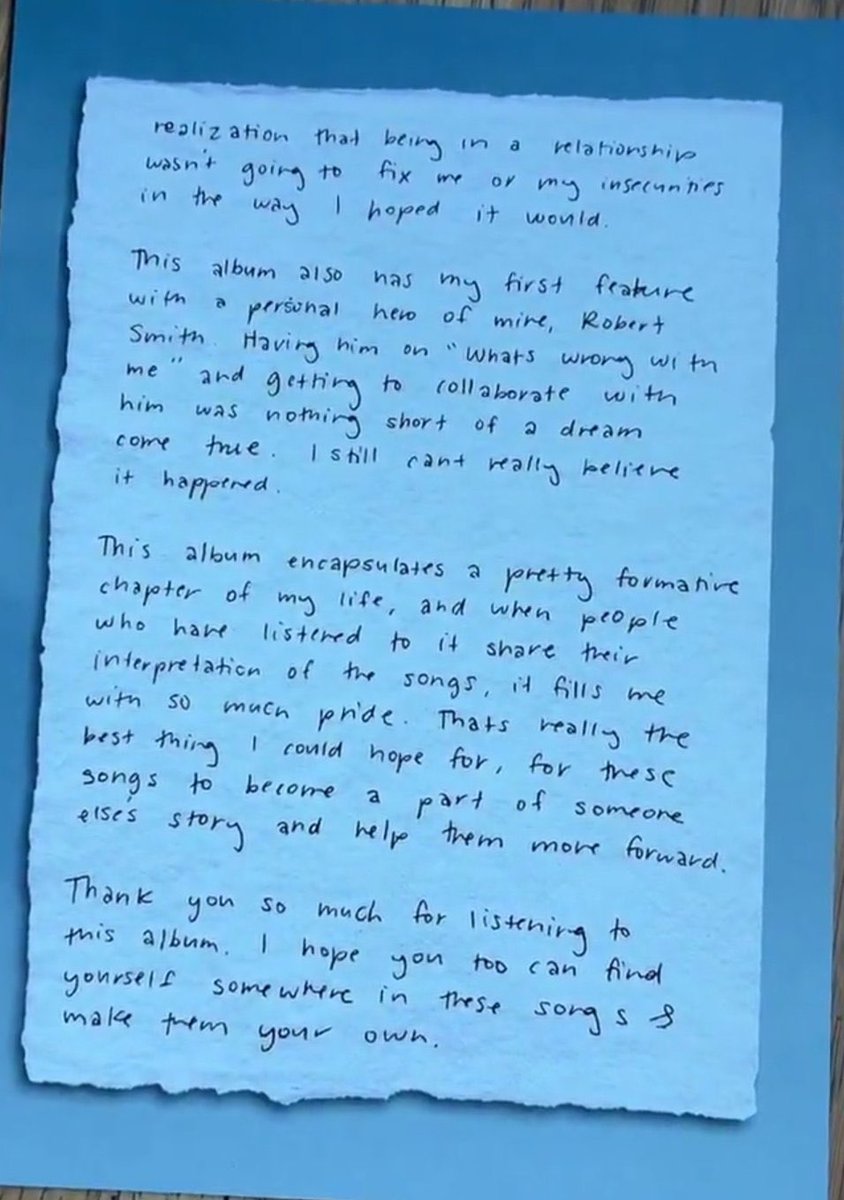 realization that being in a relationship
wasn't going to fix me or my insecurities
in the way I hoped it would.
This album also has my first feature
with a personal hero of mine, Robert
Smith. Having him on "Whats wrong with
me" and getting to collaborate with
him was nothing short of a dream
come true. I still cant really believe
it happened.
This album encapsulates a pretty formative
chapter of my life, and when people
who have listened to it share their
interpretation of the songs, it fills me
with so much pride. Thats really the
best thing I could hope for, for these
songs to become a part of someone
else's story and help them move forward.
Thank you so much for listening to
this album. I hope you too can find
yourself somewhere in these songs &
make them your own.